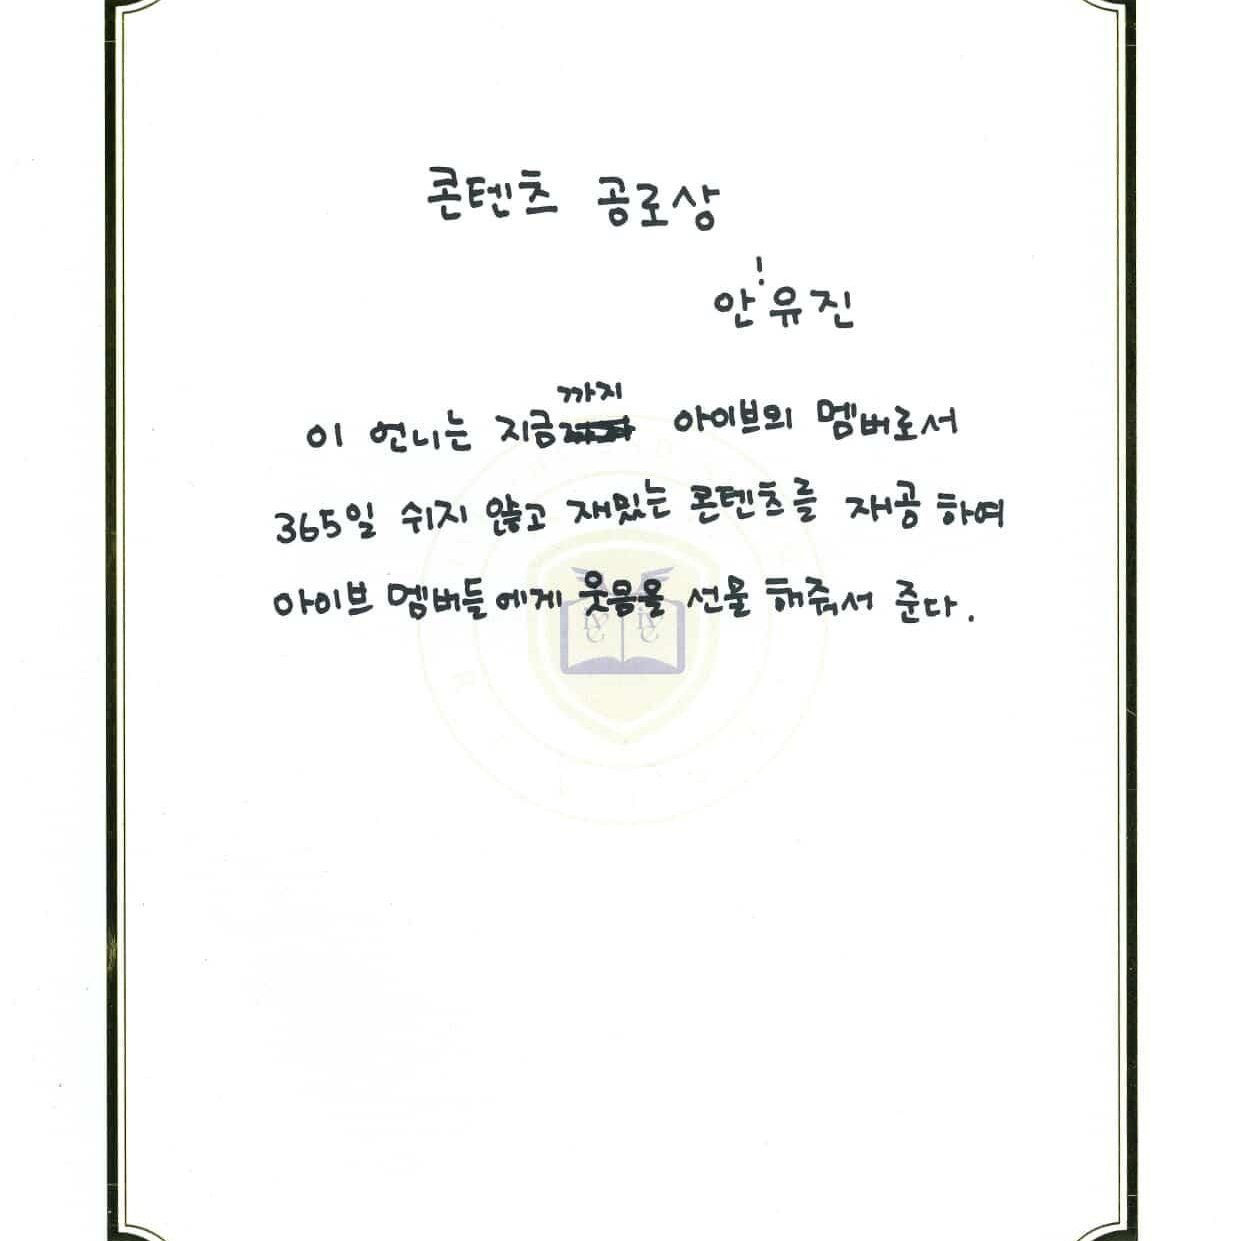 콘텐츠 공로상
안!유진
이 언니는 지금까지 아이브의 멤버로서
365일 쉬지 않고 재밌는 콘텐츠를 재공 하여
아이브 멤버들에게 웃음을 선물 해줘서 준다.
IVE IVE